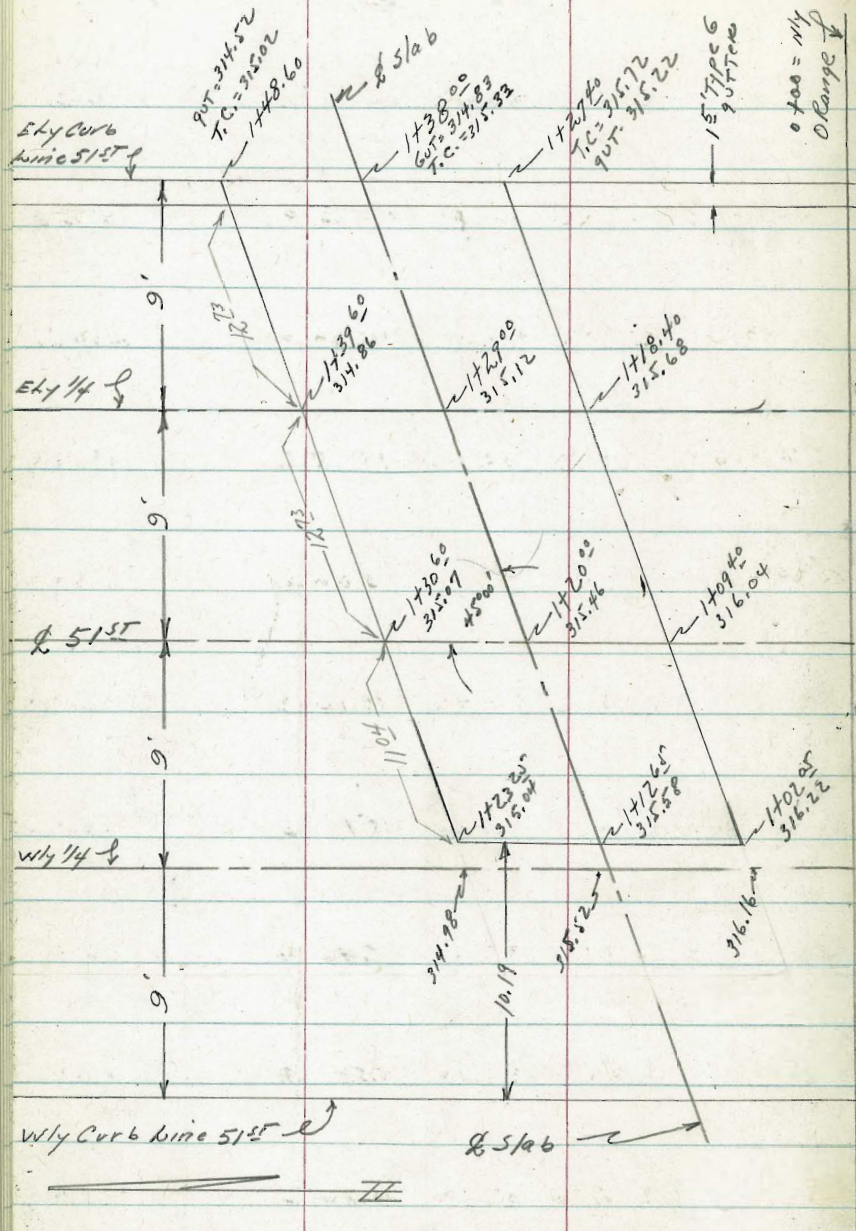 gut = 314.52
T.C. = 315.02
1+48.60
℄ Slab
1+38 00
Gut = 314.83
T.C. = 315.33
1+27 40
T.C. = 315.72
gut. 315.22
1 5' Type G
gutters
0+00 = N'ly
Orange
E'ly Curb
Line 51ST
9'
12 73
1+39 60
314.86
1+29 00
315.12
1+18.40
315.68
E'ly 1/4
9'
12 73
1+30 60
315.07
45°00'
1+20 00
315.46
1+09 40
316.04
℄ 51ST
9'
11 04
1+23 25
315.04
1+12 65
315.58
1+02 05
316.22
W'ly 1/4
314.98
315.52
316.16
9'
10.19
W'ly Curb Line 51ST
℄ Slab